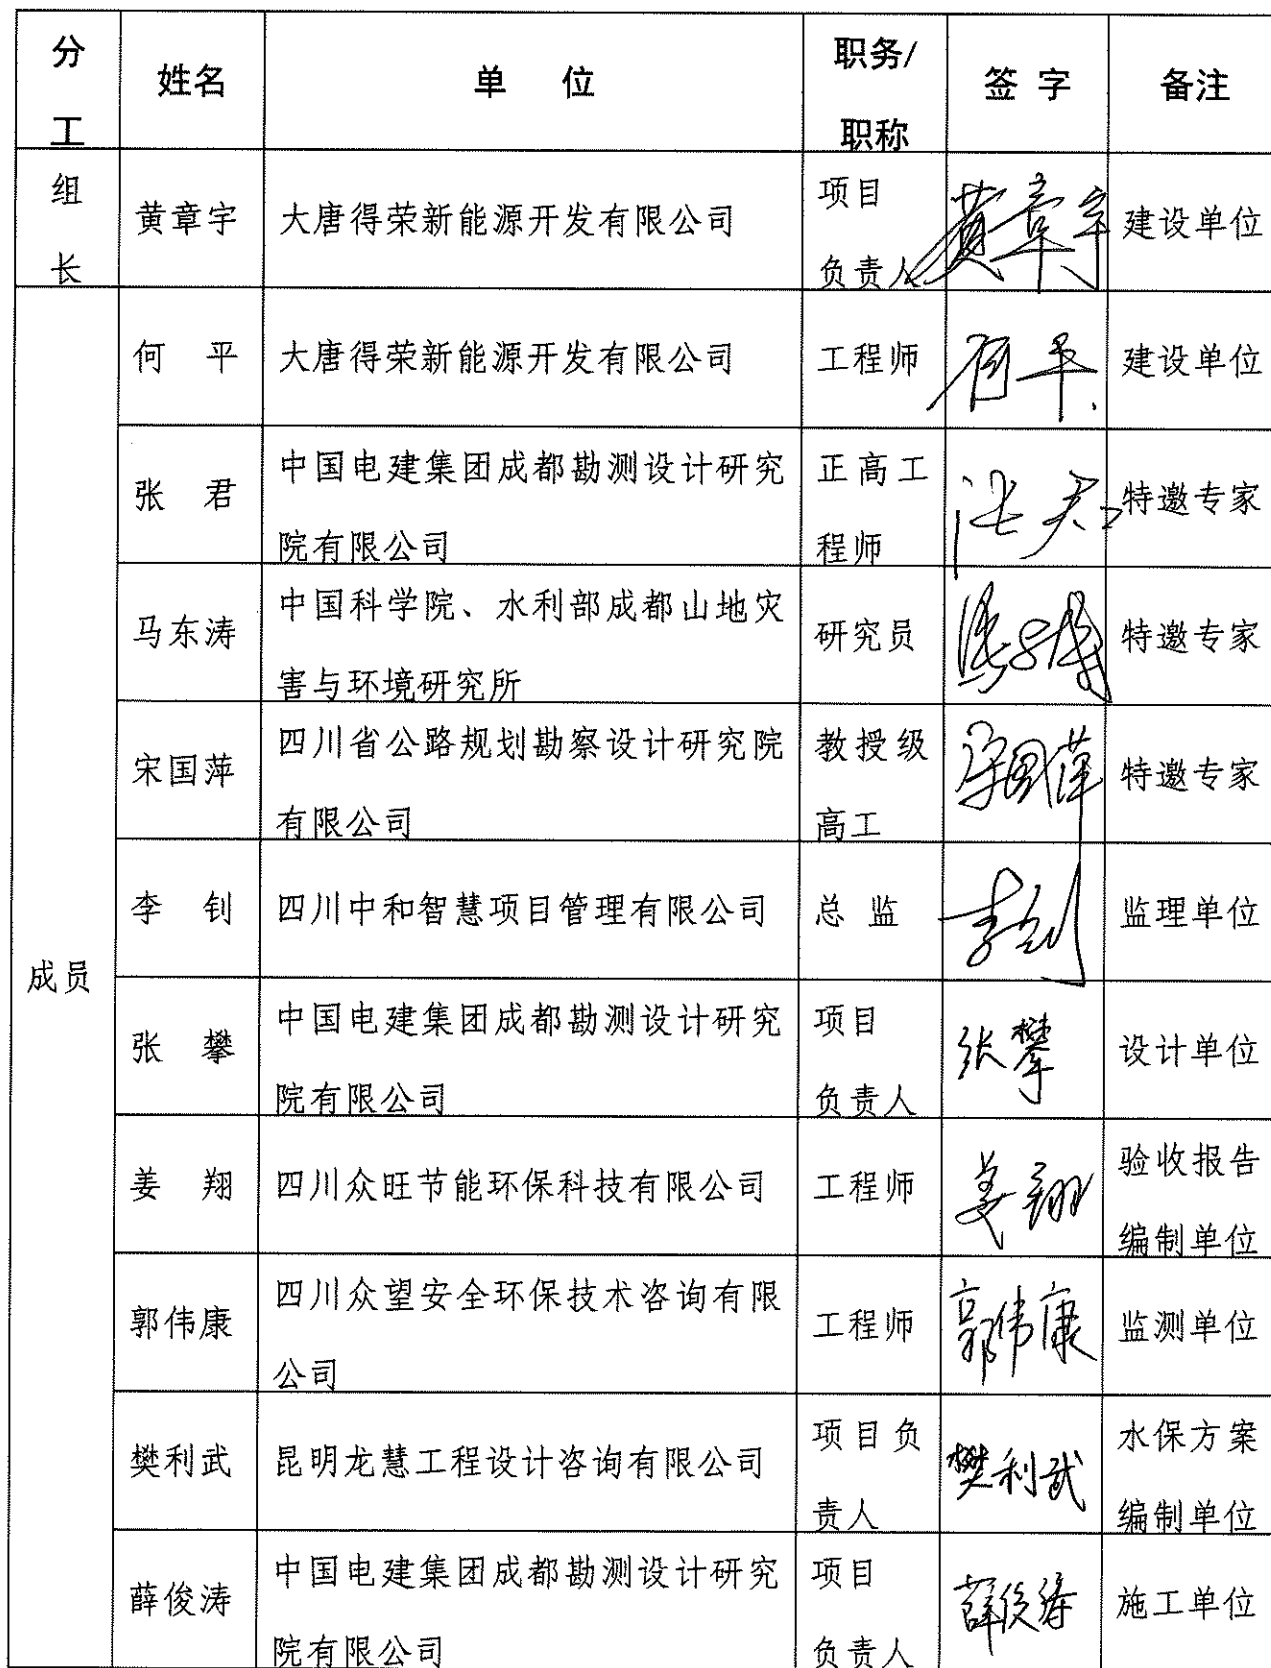 分工 姓名 单 位 职务/职称 签 字 备注
组长 黄章宇 大唐得荣新能源开发有限公司 项目负责人 黄章宇 建设单位
成员 何 平 大唐得荣新能源开发有限公司 工程师 何平 建设单位
张 君 中国电建集团成都勘测设计研究院有限公司 正高工程师 张君 特邀专家
马东涛 中国科学院、水利部成都山地灾害与环境研究所 研究员 马东涛 特邀专家
宋国萍 四川省公路规划勘察设计研究院有限公司 教授级高工 宋国萍 特邀专家
李 钊 四川中和智慧项目管理有限公司 总 监 李钊 监理单位
张 攀 中国电建集团成都勘测设计研究院有限公司 项目负责人 张攀 设计单位
姜 翔 四川众旺节能环保科技有限公司 工程师 姜翔 验收报告编制单位
郭伟康 四川众望安全环保技术咨询有限公司 工程师 郭伟康 监测单位
樊利武 昆明龙慧工程设计咨询有限公司 项目负责人 樊利武 水保方案编制单位
薛俊涛 中国电建集团成都勘测设计研究院有限公司 项目负责人 薛俊涛 施工单位